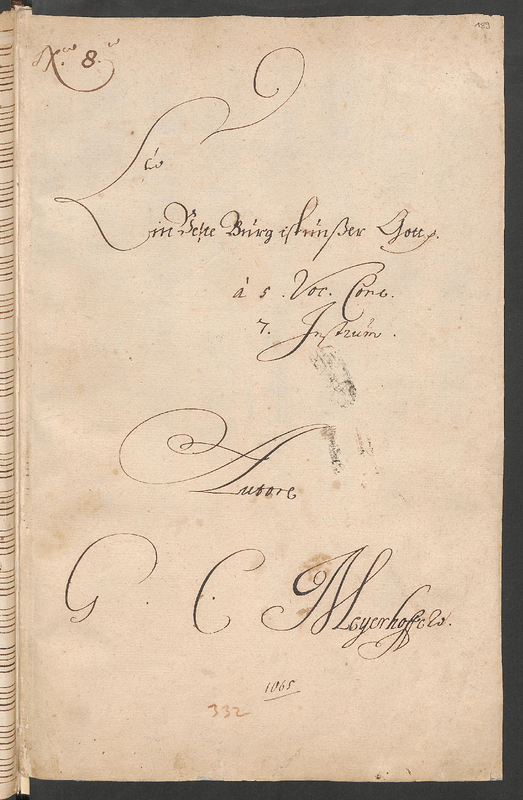 189
No. 8.
Ein Veste Burg ist unßer Gott.
à 5. Voc. Conc.
7. Instrum.
Autore
G. C. Meyerhoffer.
1065
332